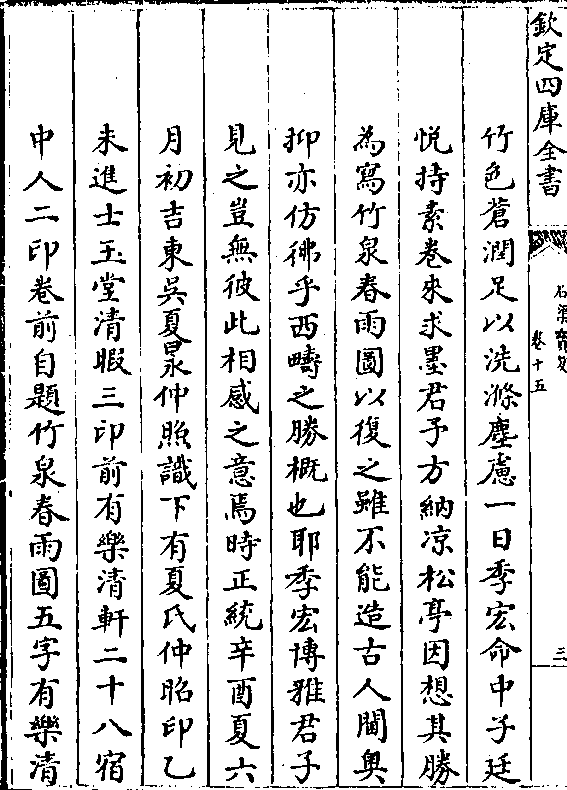 欽定四庫全書
石渠寶笈
卷十五
三
竹色蒼潤足以洗滌塵慮一日季宏命中子廷
悅持素卷來求墨君予方納凉松亭因想其勝
為寫竹泉春雨圖以復之雖不能造古人閫奥
抑亦仿彿乎西疇之勝概也耶季宏博雅君子
見之豈無彼此相感之意焉時正統辛酉夏六
月初吉東吳夏㫤仲照識下有夏氏仲昭印乙
未進士玉堂清暇三印前有樂清軒二十八宿
中人二印卷前自題竹泉春雨圖五字有樂清